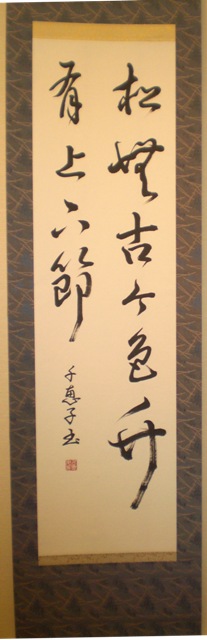 松無古今色竹
有上下節
千恵子書